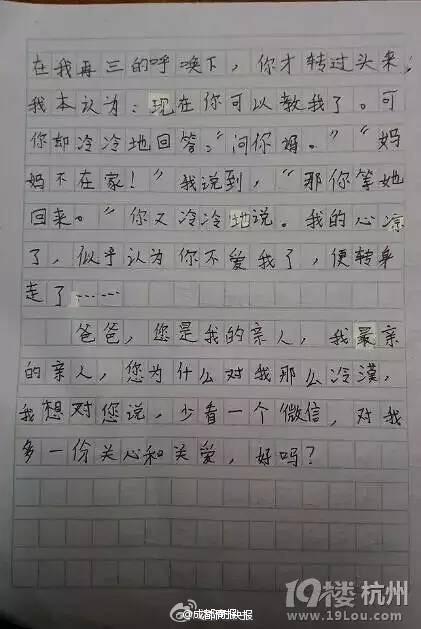 在我再三的呼唤下，你才转过头来，
我本认为：现在你可以教我了。可
你却冷冷地回答：“问你妈。”“妈
妈不在家！”我说到，“那你等她
回来。”你又冷冷地说。我的心凉
了，似乎认为你不爱我了，便转身
走了……
爸爸，您是我的亲人，我最亲
的亲人，您为什么对我那么冷漠，
我想对您说，少看一个微信，对我
多一份关心和关爱，好吗？
19楼杭州
www.19Lou.com